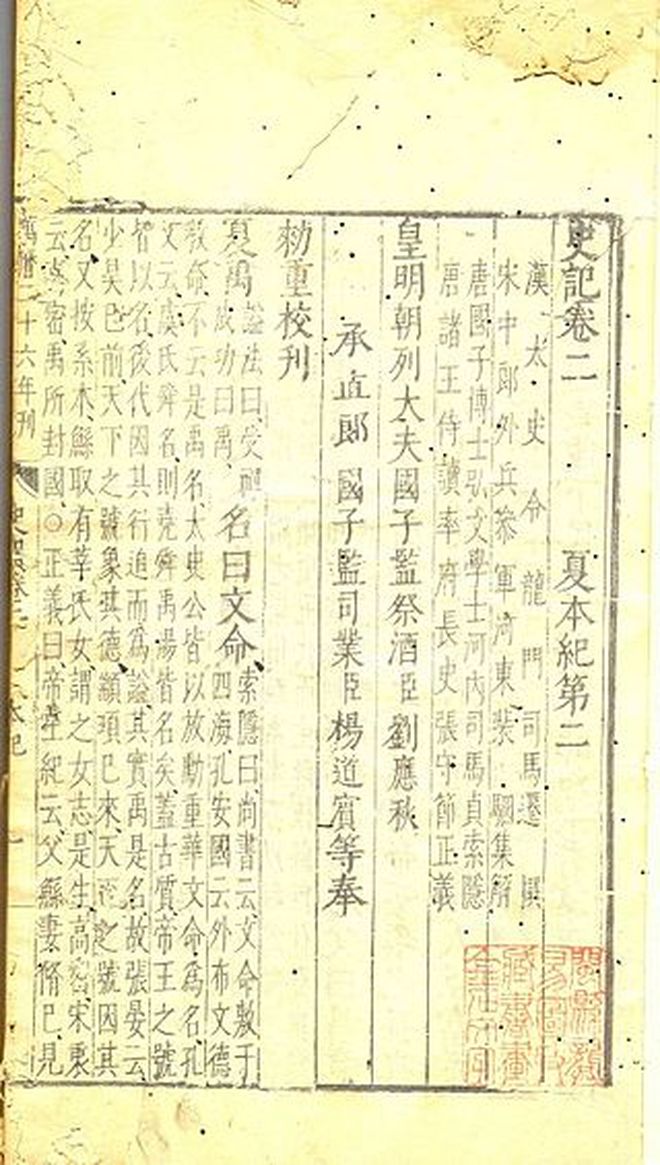 史記卷二 夏本紀第二
漢太史令龍門司馬遷撰
宋中郎外兵參軍河東裴駰集解
唐國子博士弘文學士河內司馬貞索隱
唐諸王侍讀率府長史張守節正義
皇明朝列大夫國子監祭酒臣劉應秋
承直郎國子監司業臣楊道賓等奉
勑重校刊
夏禹
謚法曰受禪
成功曰禹
名曰文命
索隱曰尚書云文命敷于
四海孔安國云外布文德
教命不云是禹名太史公皆以放勳重華文命爲名孔
文云虞氏舜名則堯舜禹湯皆名矣蓋古質帝王之號
皆以名後代因其行追而爲謚其實禹是名故張晏云
少昊已前天下之號象其德顓頊已來天下之號因其
名又按系本鯀取有莘氏女謂之女志是生高密宋衷
云高密禹所封國○正義曰帝王紀云父鯀妻脩己見
萬曆二十六年刊
史記卷二
本紀
一